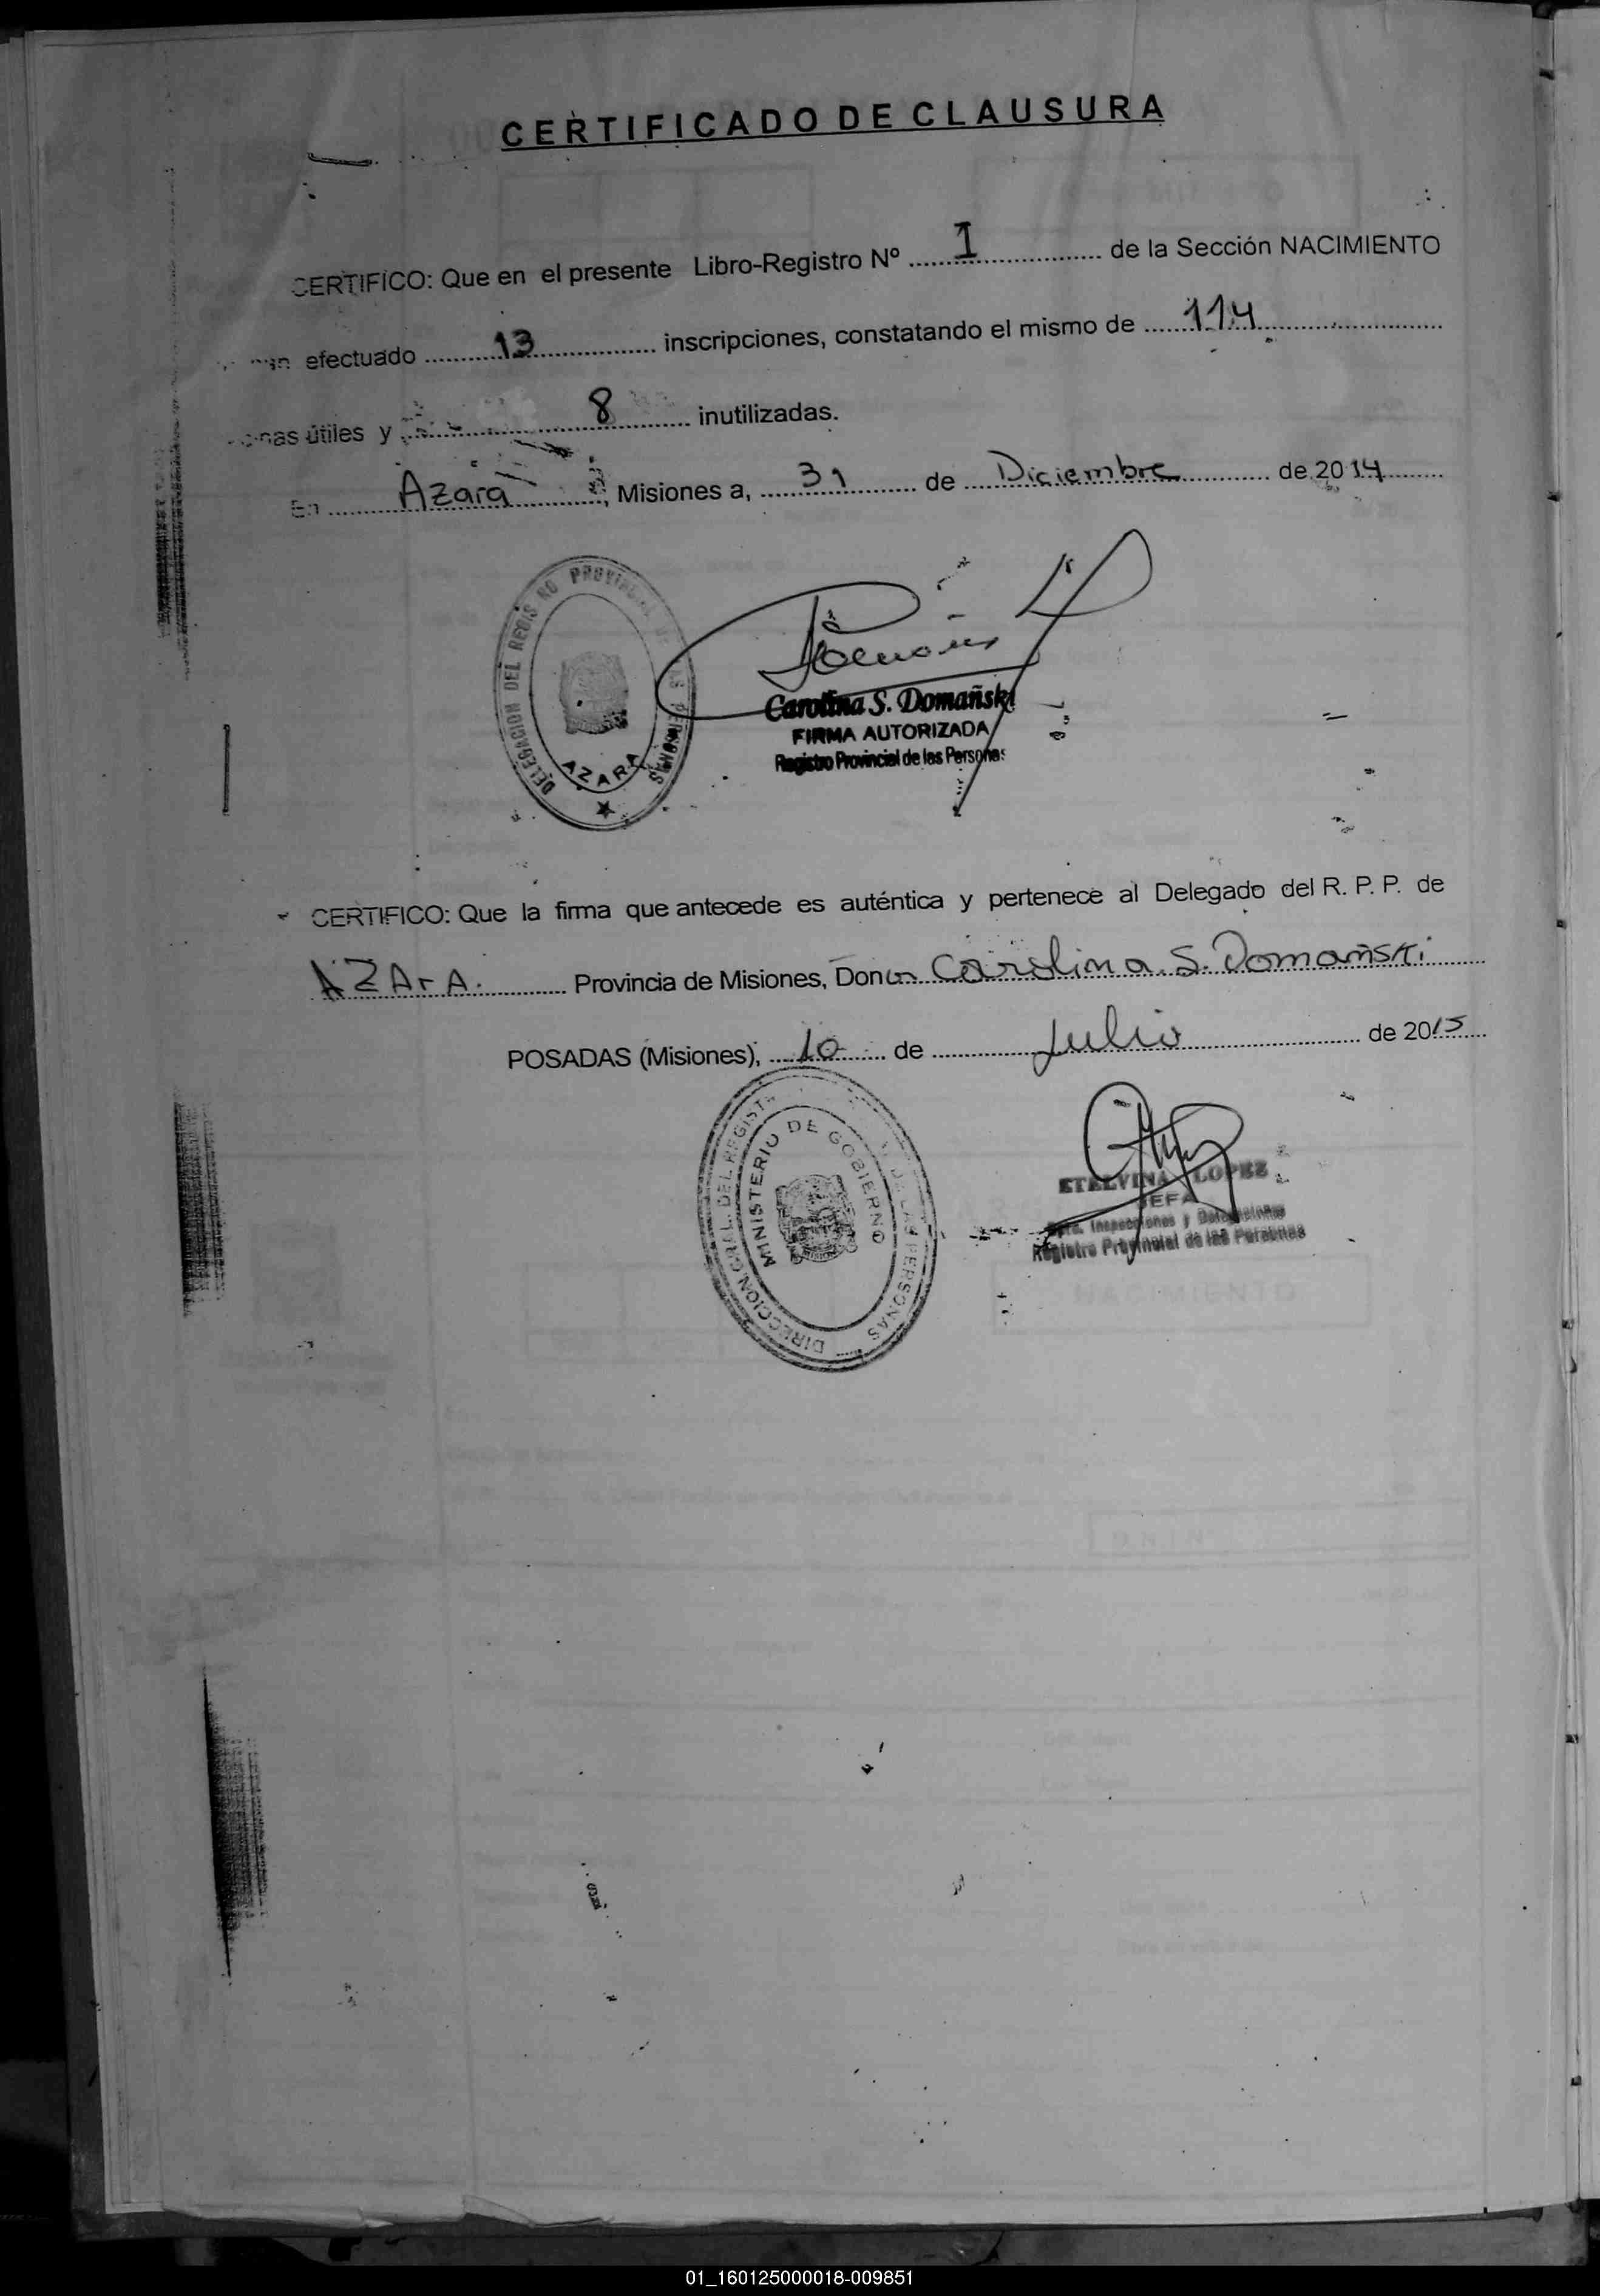 CERTIFICADO DE CLAUSURA
CERTIFICO: Que en el presente Libro-Registro Nº 1 de la Sección NACIMIENTO
efectuado 13 inscripciones, constatando el mismo de 114
útiles y 8 inutilizadas.
En Azara, Misiones a, 31 de Diciembre de 2014
DELEGACION DEL REGISTRO PROVINCIAL DE LAS PERSONAS
AZARA
Carolina S. Domañski
FIRMA AUTORIZADA
Registro Provincial de las Personas
CERTIFICO: Que la firma que antecede es auténtica y pertenece al Delegado del R. P. P. de
AZArA. Provincia de Misiones, Dona Carolina. S. Domañski
POSADAS (Misiones), 10 de Julio de 2015
DIRECCION GRAL. DEL REGISTRO DE LAS PERSONAS
MINISTERIO DE GOBIERNO
ETELVINA LOPEZ
JEFA
Dpto. Inspecciones y Delegaciones
Registro Provincial de las Personas
NACIMIENTO
01_160125000018-009851